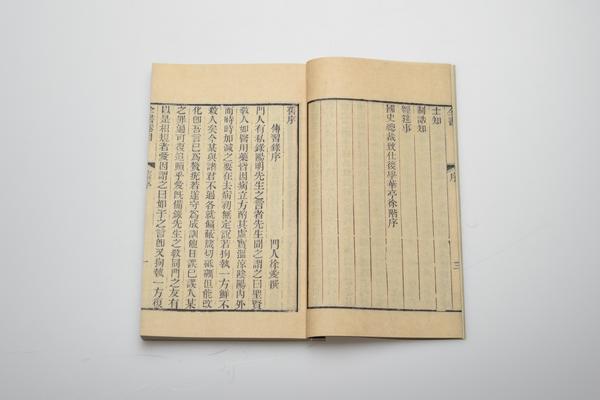 全書 序 三
士知
制誥知
經筵事
國史總裁致仕後學華亭徐階序
舊序
傳習錄序 門人徐愛撰
門人有私錄陽明先生之言者先生聞之謂之曰聖賢
教人如醫用藥皆因病立方酌其虛實溫涼陰陽內外
而時時加減之要在去病初無定說若拘執一方鮮不
殺人矣今某與諸君不過各就偏蔽箴切砥礪但能改
化即吾言已為贅疣若遂守為成訓他日誤己誤人某
之罪過可復追贖乎愛既備錄先生之教同門之友有
以是相規者愛因謂之曰如子之言即又拘執一方復
一